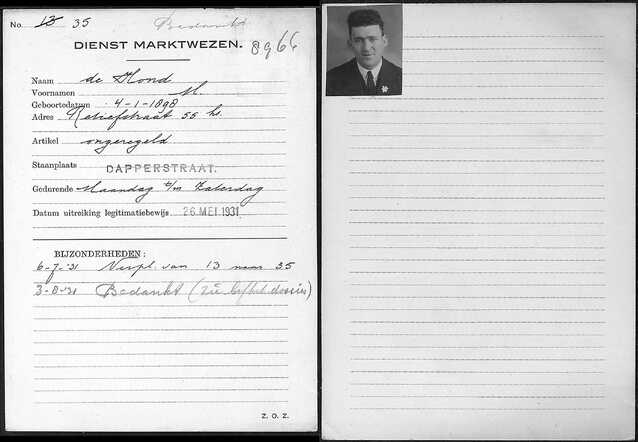 No. 13 35 Bedankt
DIENST MARKTWEZEN. 8966
Naam de Hond
Voornamen M.
Geboortedatum 4-1-1898
Adres Retiefstraat 55 hs.
Artikel ongeregeld
Staanplaats DAPPERSTRAAT.
Gedurende Maandag t/m Zaterdag
Datum uitreiking legitimatiebewijs 26 MEI 1931
BIJZONDERHEDEN:
6-7-'31 Verpl. van 13 naar 35
3-8-31 Bedankt (zie dossier)
Z. O. Z.